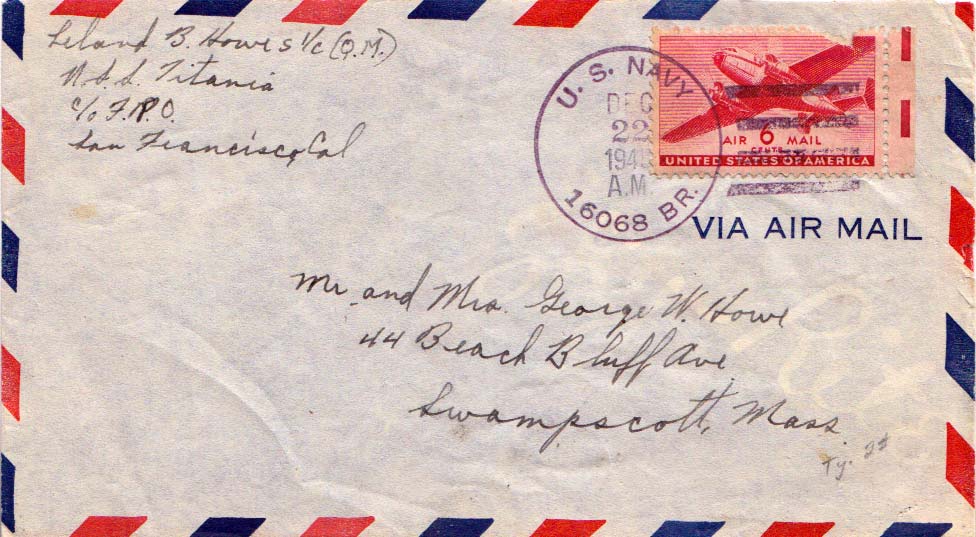 Leland B. Howe S 1/c (Q.M.)
U.S.S. Titania
c/o F.P.O.
San Francisco, Cal
U. S. NAVY
DEC
22
A.M.
16068 BR.
AIR 6 MAIL
CENTS
UNITED STATES OF AMERICA
VIA AIR MAIL
Mr. and Mrs. George W. Howe
44 Beach Bluff Ave
Swampscott, Mass.
Ty.